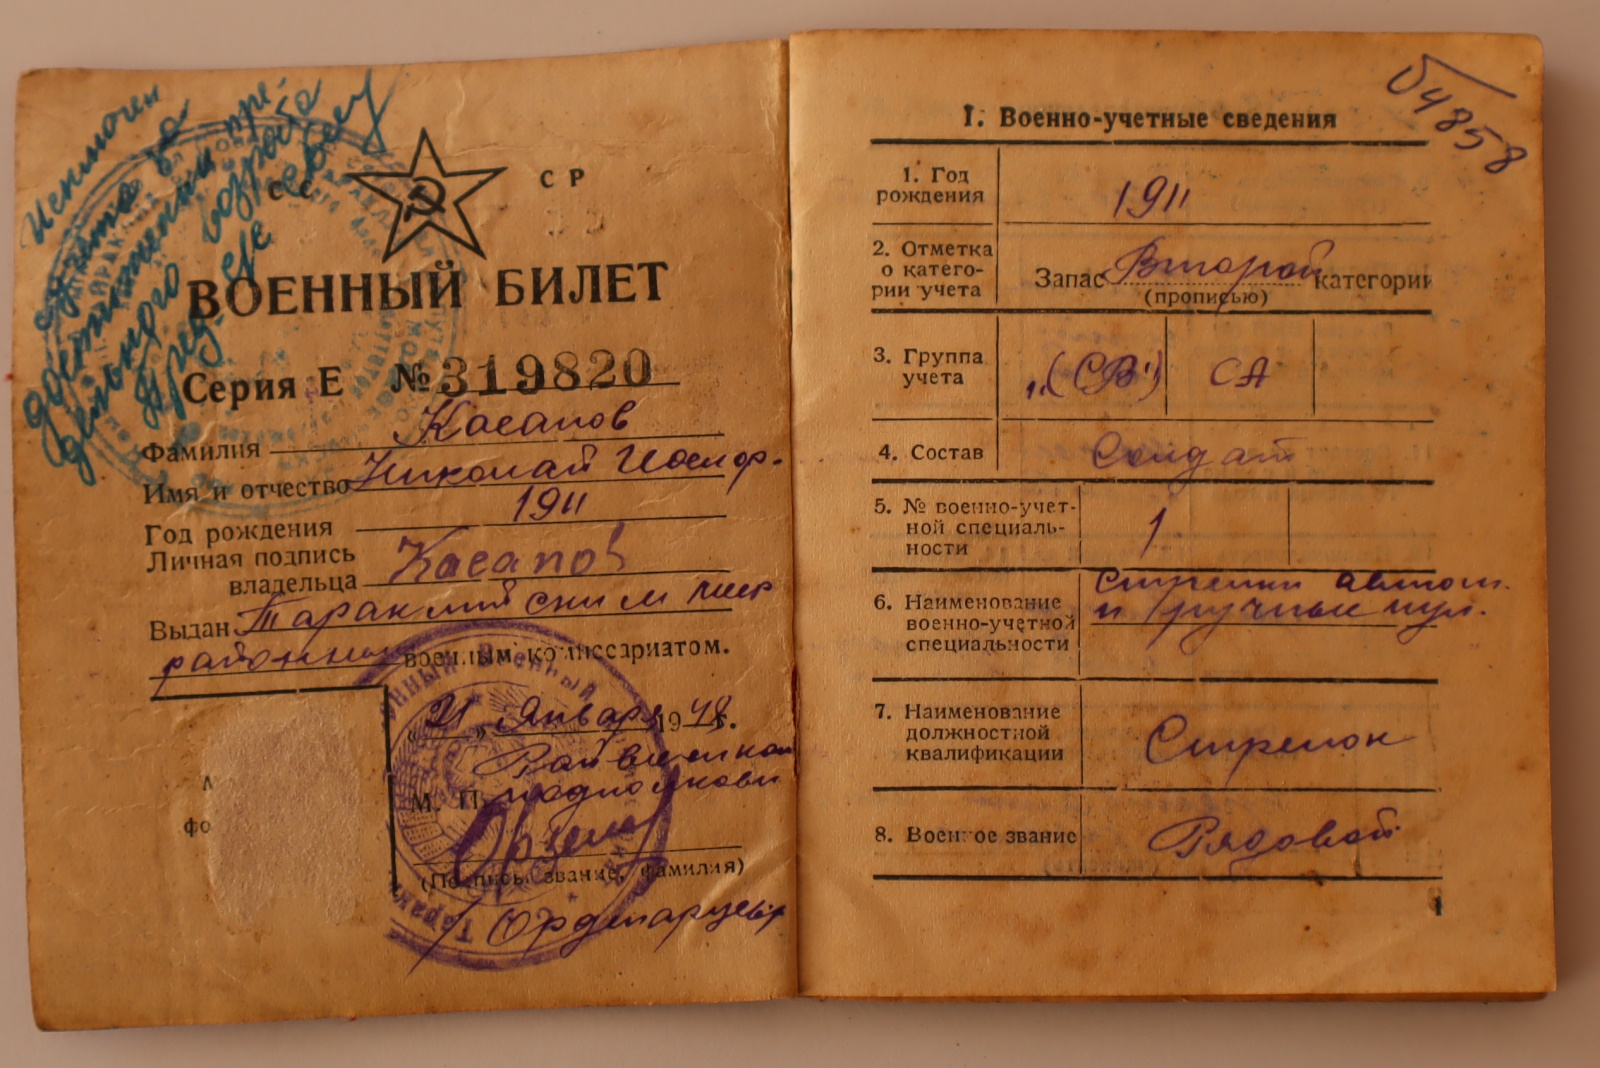 Исключен
с учета за
достижением пре-
дельного возраста
СССР
ВОЕННЫЙ БИЛЕТ
Серия Е № 319820
Фамилия Касапов
Имя и отчество Николай
Год рождения 1911
Личная подпись
владельца Касапов
Выдан Тараклийским
районным военным комиссариатом.
«21» Января 1948 г.
Райвоенком
М. П. подполковн
(Подпись, звание, фамилия)
фо
4858
I. Военно-учетные сведения
1. Год
рождения
1911
2. Отметка
о катего-
рии учета
Запас Второй категории
(прописью)
3. Группа
учета
"(СВ") СА
4. Состав Солдат
5. № военно-учет-
ной специаль-
ности
1
6. Наименование
военно-учетной
специальности
Стрелки автом.
и ручные пул.
7. Наименование
должностной
квалификации
Стрелок
8. Военное звание Рядовой
1